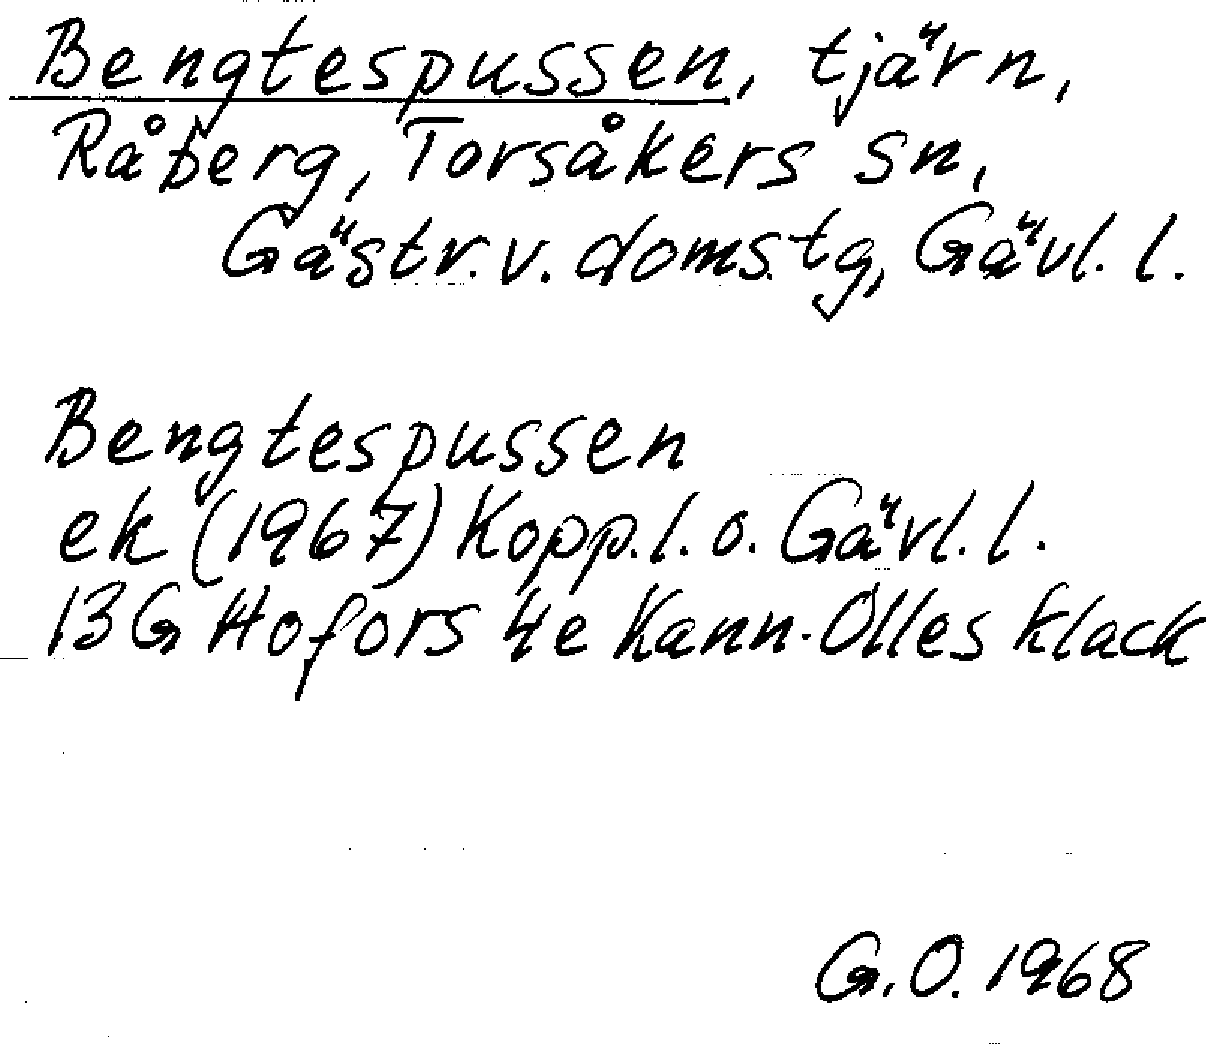 Bengtespussen, tjärn,
Råberg, Torsåkers sn,
Gästr. v. doms.tg, Gävl. l.
Bengtespussen
ek (1967) Kopp. l. o. Gävl. l.
13G Hofors 4e Kann-Olles klack
G.O. 1968